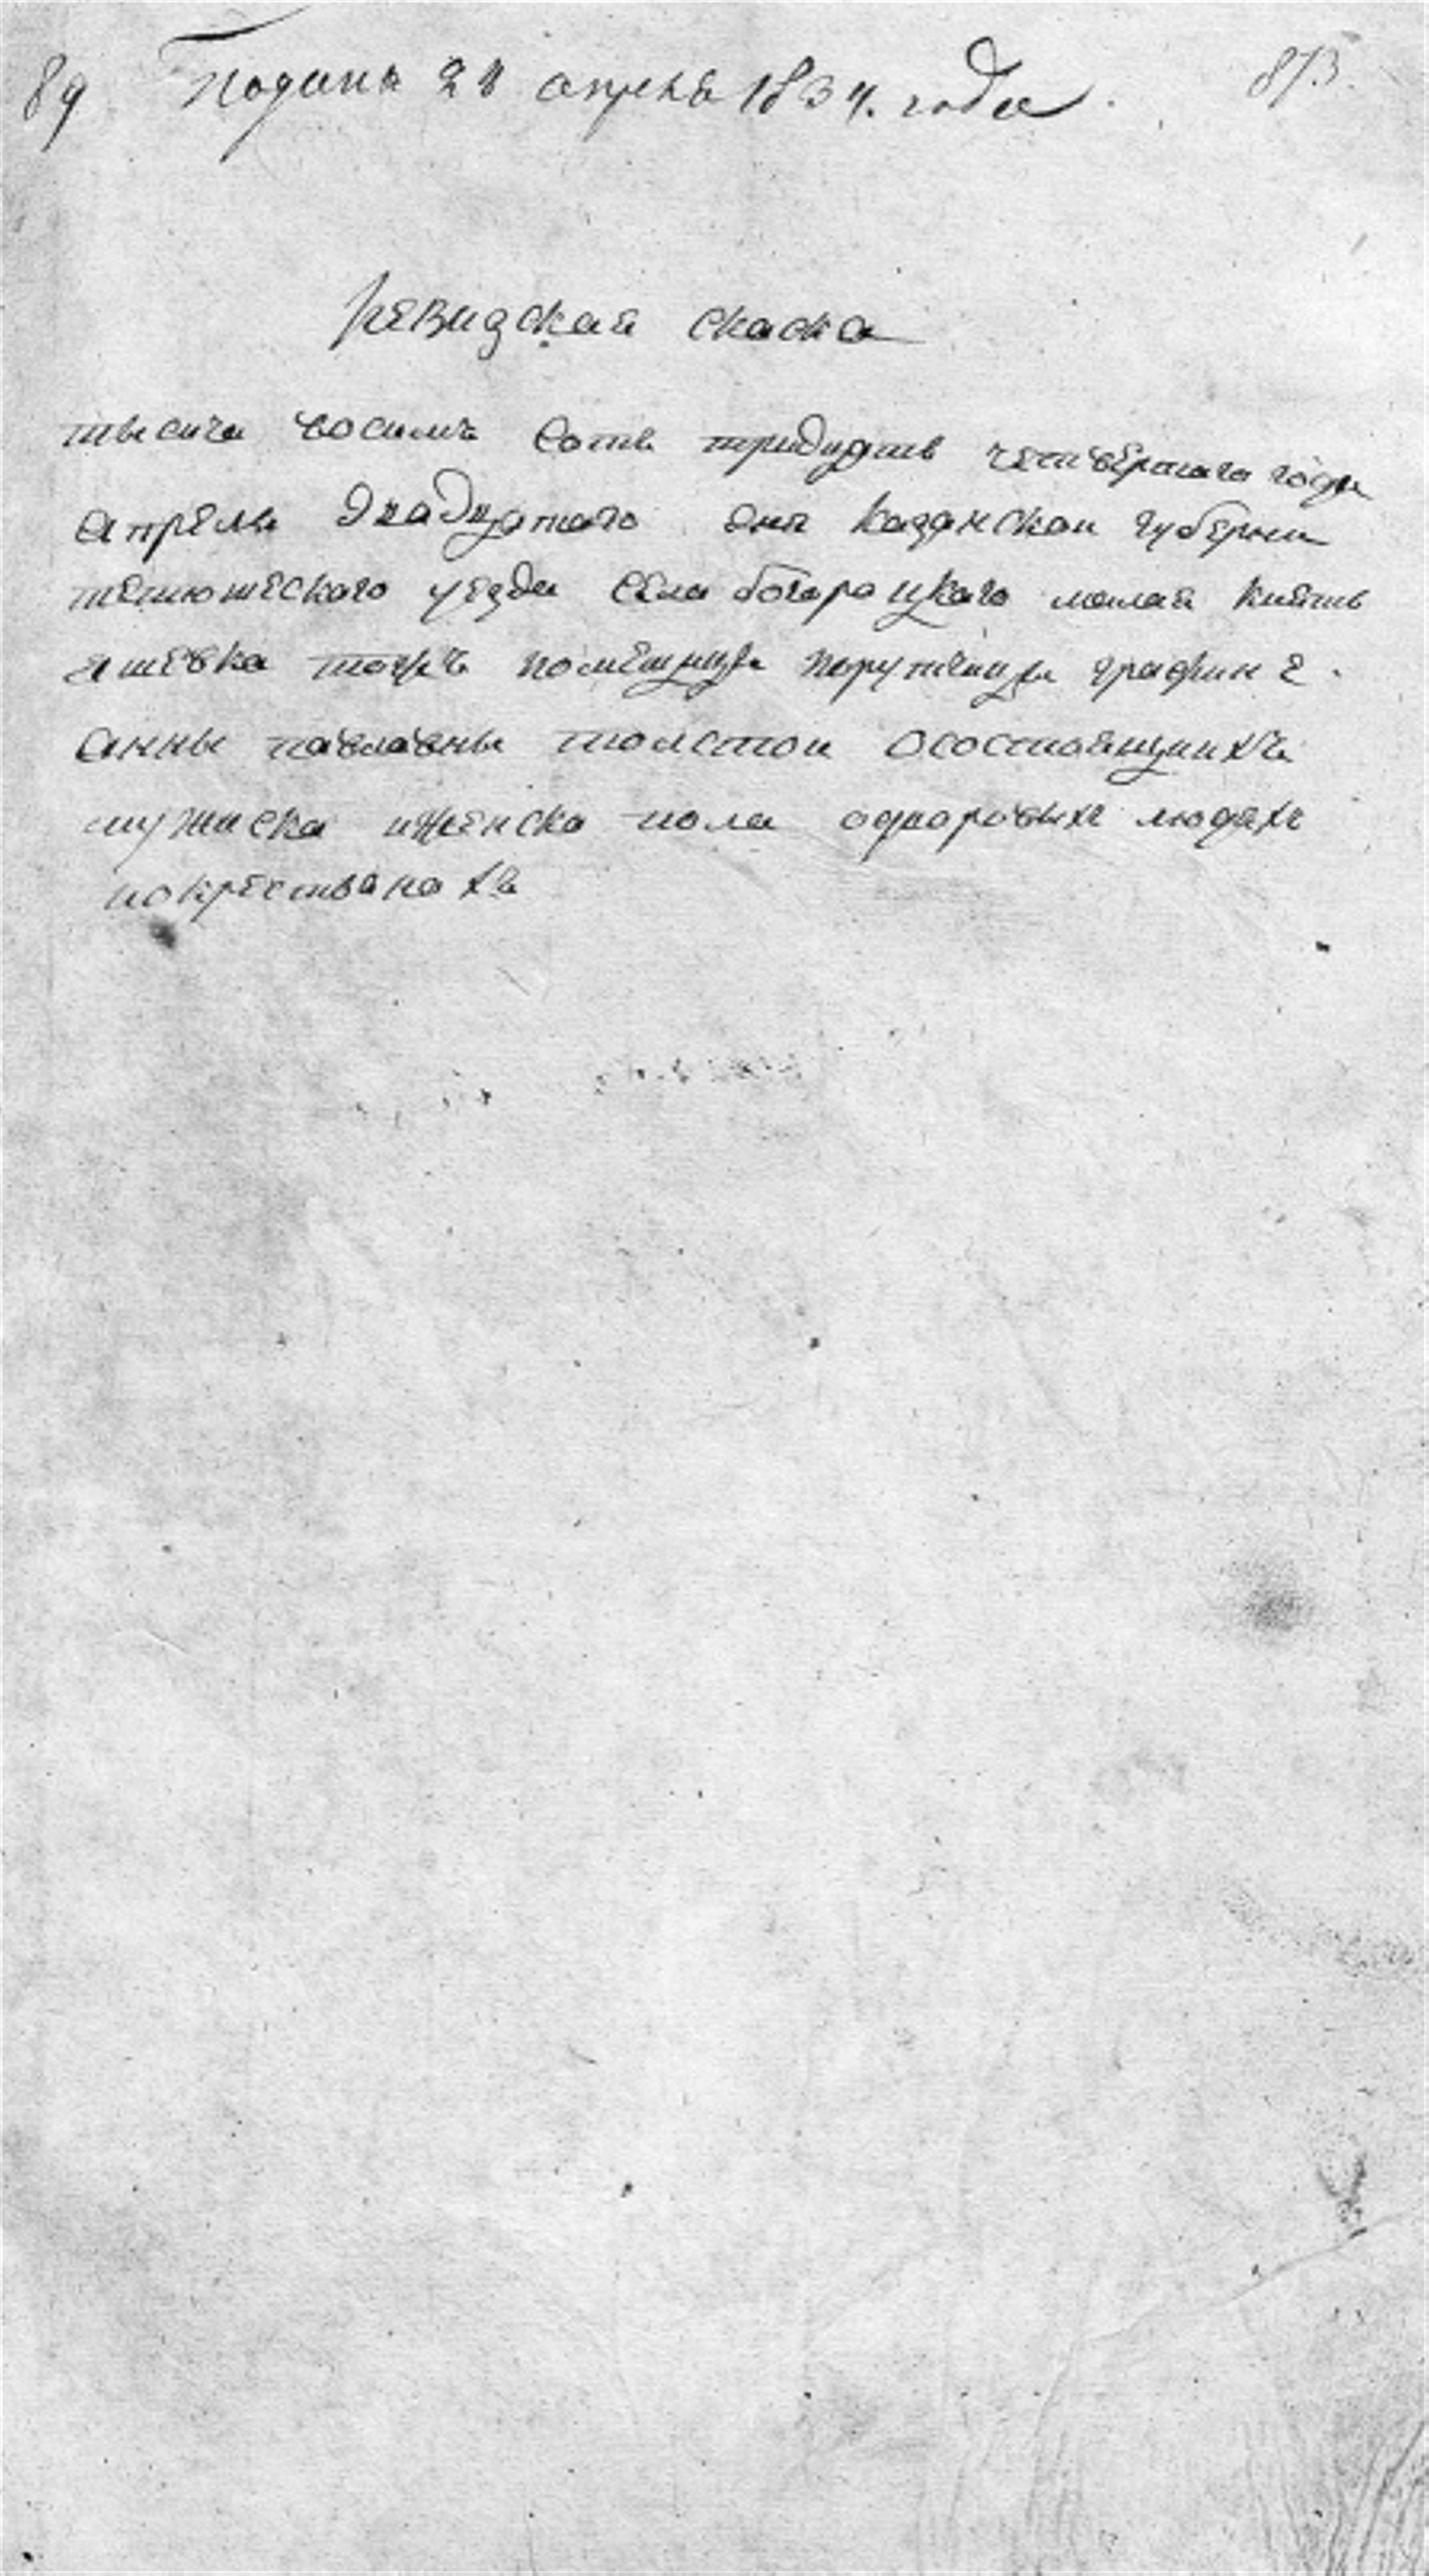 89 Подана 21 апреля 1834. года. 873.
ревизская скаска
тысеча восимъ сотъ тридцать четвертаго года
апреля двадцатаго дня казанской губернии
тетюшескаго уезда села богородцкаго малая
тожъ помещицы порутчицы графине
анны павлавны толстои осостоящихъ
мужиска иженска пола одворовыхъ людяхъ
икрестьянахъ